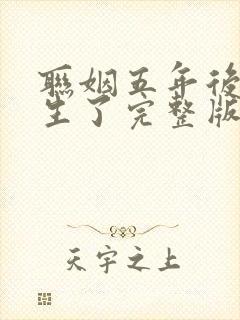 聯姻五年後
生了完整版
天宇之上